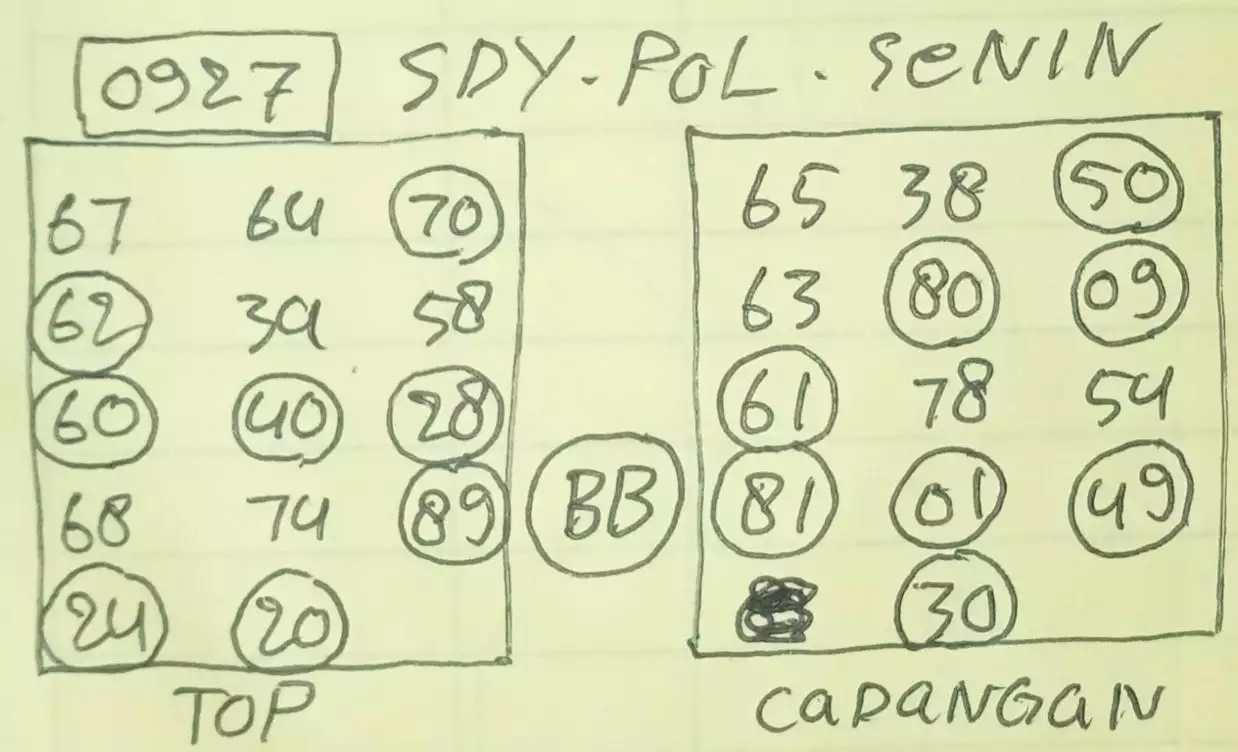 0927 SDY.POL.SeNIN
67 64 70
62 34 58
60 40 28
68 74 89
24 20
TOP
BB
65 38 50
63 80 09
61 78 54
81 01 49
30
CaDaNGaN